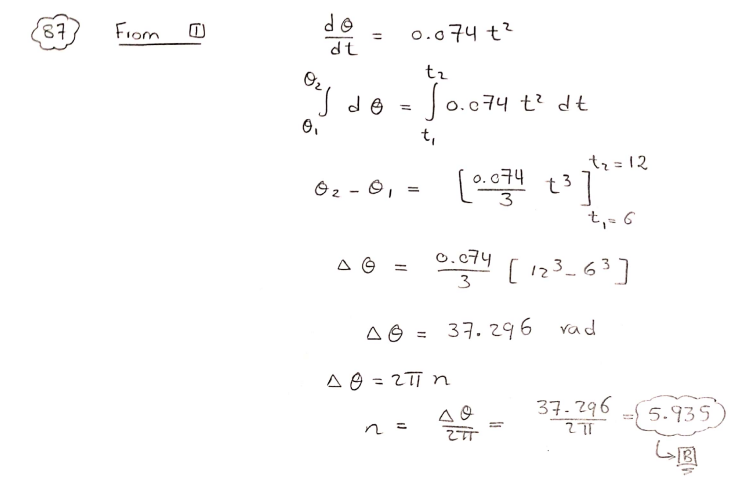 87 From 1 dθ/dt = 0.074 t²
θ₂ ∫ θ₁ dθ = ∫ t₂ t₁ 0.074 t² dt
θ₂ - θ₁ = [0.074/3 t³] t₂=12 t₁=6
Δθ = 0.074/3 [12³-6³]
Δθ = 37.296 rad
Δθ = 2π n
n = Δθ/2π = 37.296/2π = 5.935
↳ B